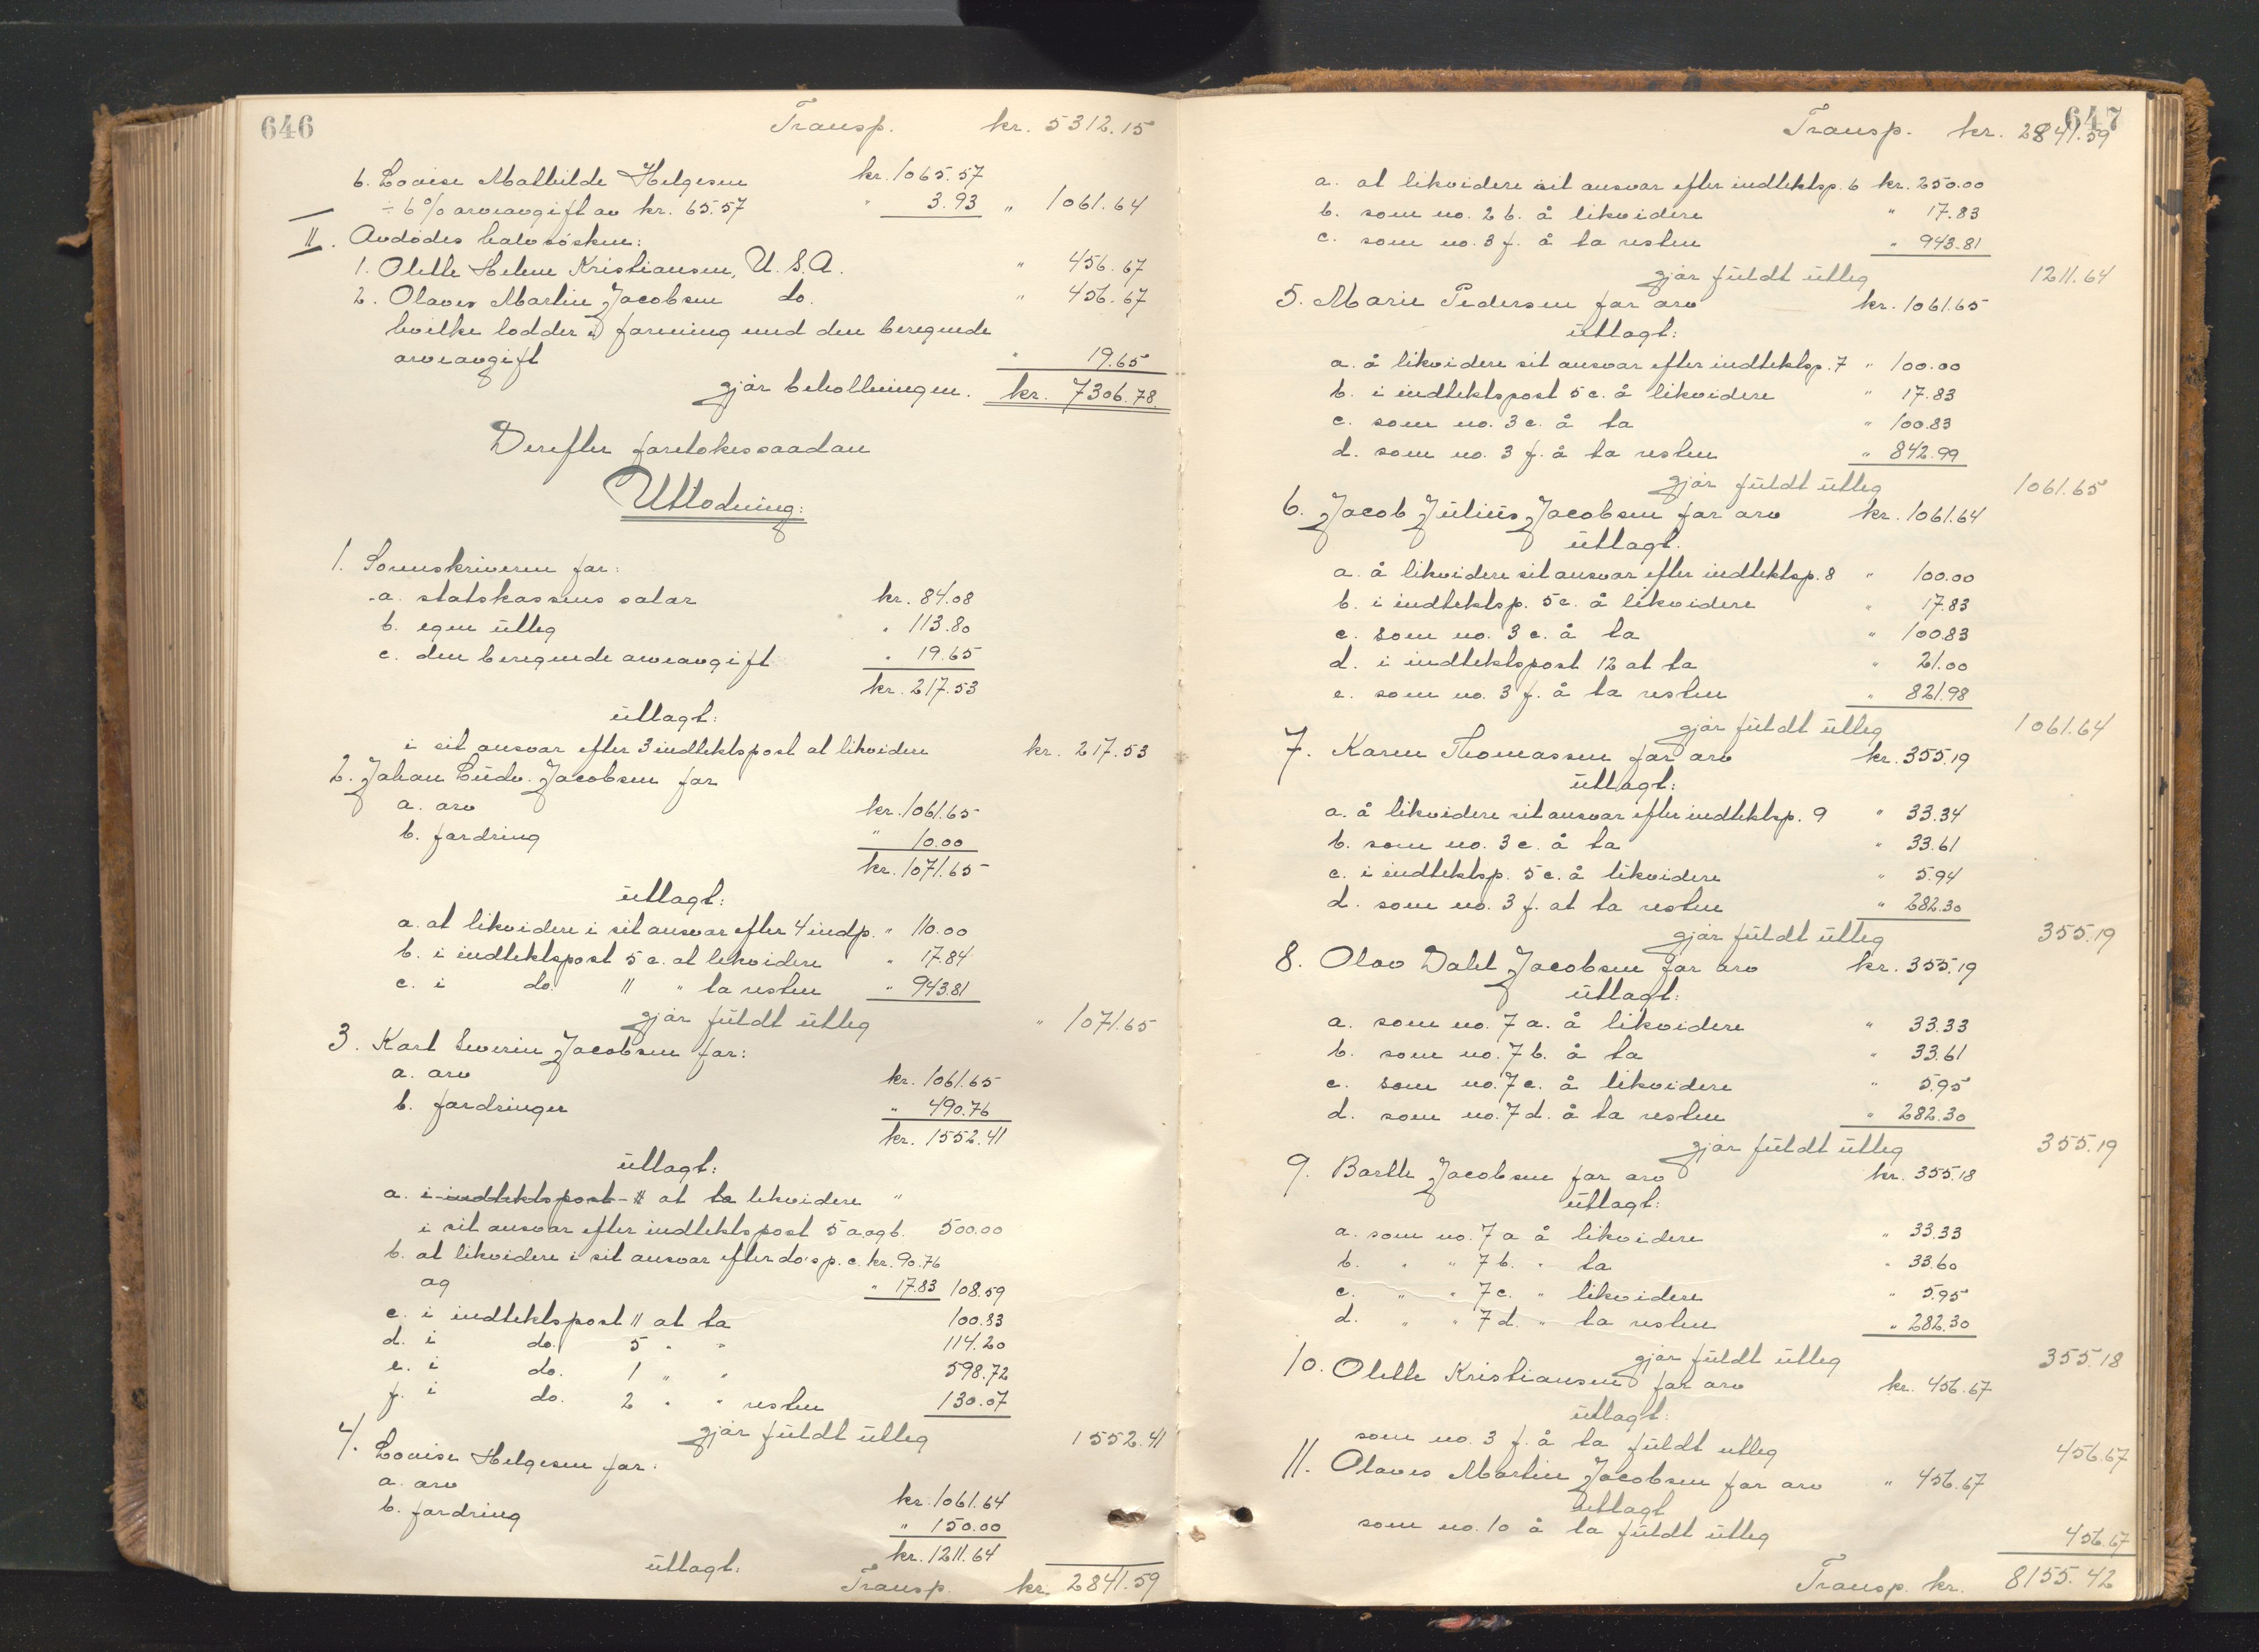 646
Transp. kr. 5312.15
6. Lovise Mathilde Helgesen kr. 1065.57
÷ 6% arveavgift av kr. 65.57 " 3.93 " 1061.64
II. Avdødes halvsøsken:
1. Olette Helene Kristiansen, U.S.A. " 456.67
2. Olaves Martin Jacobsen do. " 456.67
hvilke lodder i forening med den beregnede
arveavgift " 19.65
gjør beholdningen. kr. 7306.78.
Derefter foretokes saadan
Utlodning:
1. Sorenskriveren for:
a. statskassens salar kr. 84.08
b. egne utleg " 113.80
c. den beregnede arveavgift " 19.65
kr. 217.53
utlagt:
i sit ansvar efter 3 indtektspost at likvidere kr. 217.53
2. Johan Ludv. Jacobsen for
a. arv kr. 1061.65
b. fordring " 10.00
kr. 1071.65
utlagt:
a. at likvidere i sit ansvar efter 4 indp. " 110.00
b. i indtektspost 5 c. at likvidere " 17.84
c. i do. 11 " ta resten " 943.81
gjør fuldt utleg " 1071.65
3. Karl Severin Jacobsen for:
a. arv kr. 1061.65
b. fordringer " 490.76
kr. 1552.41
utlagt:
a. i indtektspost 11 at ta likvidere "
i sit ansvar efter indtektspost 5 a og b. 500.00
b. at likvidere i sit ansvar efter do. sp. c. kr. 90.76
og " 17.83 108.59
c. i indtektspost 11 at ta 100.83
d. i do. 5 " " 114.20
e. i do. 1 " " 598.72
f. i do. 2 " " resten 130.07
gjør fuldt utleg 1552.41
4. Lovise Helgesen for:
a. arv kr. 1061.64
b. fordring " 150.00
kr. 1211.64
utlagt:
Transp. kr. 2841.59
647
Transp. kr. 2841.59
a. at likvidere sit ansvar efter indtektsp. 6 kr. 250.00
b. som no. 2 b. å likvidere " 17.83
c. som no. 3 f. å ta resten " 943.81
gjør fuldt utleg 1211.64
5. Marie Pedersen for arv kr. 1061.65
utlagt:
a. å likvidere sit ansvar efter indtektsp. 7 " 100.00
b. i indtektspost 5 c. å likvidere " 17.83
c. som no. 3 c. å ta " 100.83
d. som no. 3 f. å ta resten " 842.99
gjør fuldt utleg 1061.65
6. Jacob Julius Jacobsen for arv kr. 1061.64
utlagt.
a. å likvidere sit ansvar efter indtektsp. 8 " 100.00
b. i indtektsp. 5 c. å likvidere " 17.83
c. som no. 3 c. å ta " 100.83
d. i indtektspost 12 at ta " 21.00
e. som no. 3 f. å ta resten " 821.98
gjør fuldt utleg 1061.64
7. Karen Thomassen for arv kr. 355.19
utlagt:
a. å likvidere sit ansvar efter indtektsp. 9 " 33.34
b. som no. 3 c. å ta " 33.61
c. i indtektsp. 5 c. å likvidere " 5.94
d. som no. 3 f. at ta resten " 282.30
gjør fuldt utleg 355.19
8. Olav Dahl Jacobsen for arv kr. 355.19
utlagt:
a. som no. 7 a. å likvidere " 33.33
b. som no. 7 b. å ta " 33.61
c. som no. 7 c. å likvidere " 5.95
d. som no. 7 d. å ta resten " 282.30
gjør fuldt utleg 355.19
9. Barthe Jacobsen for arv kr. 355.18
utlagt:
a. som no. 7 a å likvidere " 33.33
b. " " 7 b. " ta " 33.60
c. " " 7 c. " likvidere " 5.95
d. " " 7 d. " ta resten " 282.30
gjør fuldt utleg 355.18
10. Olette Kristiansen for arv kr. 456.67
utlagt:
som no. 3 f. å ta fuldt utleg 456.67
11. Olaves Martin Jacobsen for arv " 456.67
utlagt
som no. 10 å ta fuldt utleg 456.67
Transp. kr. 8155.42